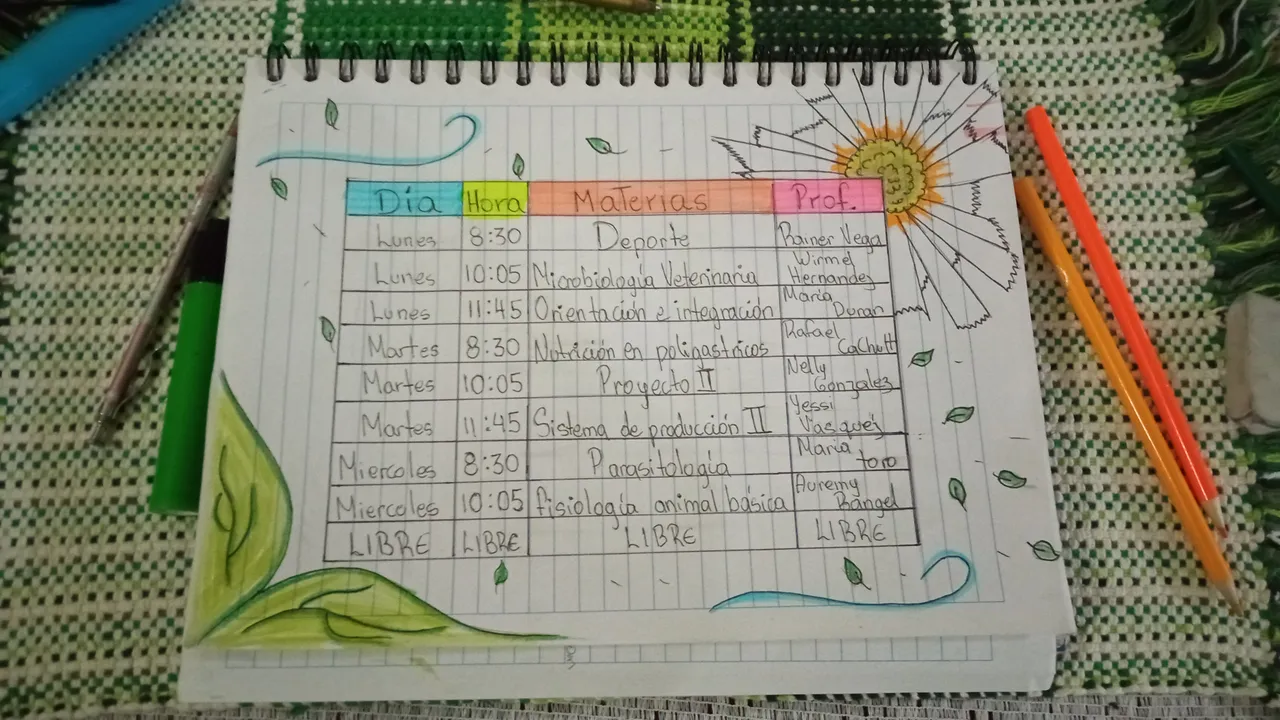 Día Hora Materias Prof.
Lunes 8:30 Deporte Rainer Vega
Lunes 10:05 Microbiología Veterinaria Wirmel Hernandez
Lunes 11:45 Orientación e integración Maria Duran
Martes 8:30 Nutrición en poligastricos Rafael Cachutt
Martes 10:05 Proyecto II Nelly Gonzalez
Martes 11:45 Sistema de producción II Yessi Vasquez
Miercoles 8:30 Parasitología Maria toro
Miercoles 10:05 fisiología animal básica Auremy Rangel
LIBRE LIBRE LIBRE LIBRE